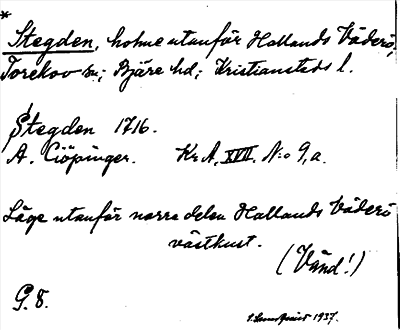 *
Stegden, holme utanför Hallands Väderö,
Torekov sn; Bjäre hd; Kristianstads l.
Stegden 1716.
A. Ciöpinger. Kr. A. XVII. N:o 9, a.
Läge utanför norra delen Hallands Väderö
västkust.
(Vänd!)
G. 8.
1937.